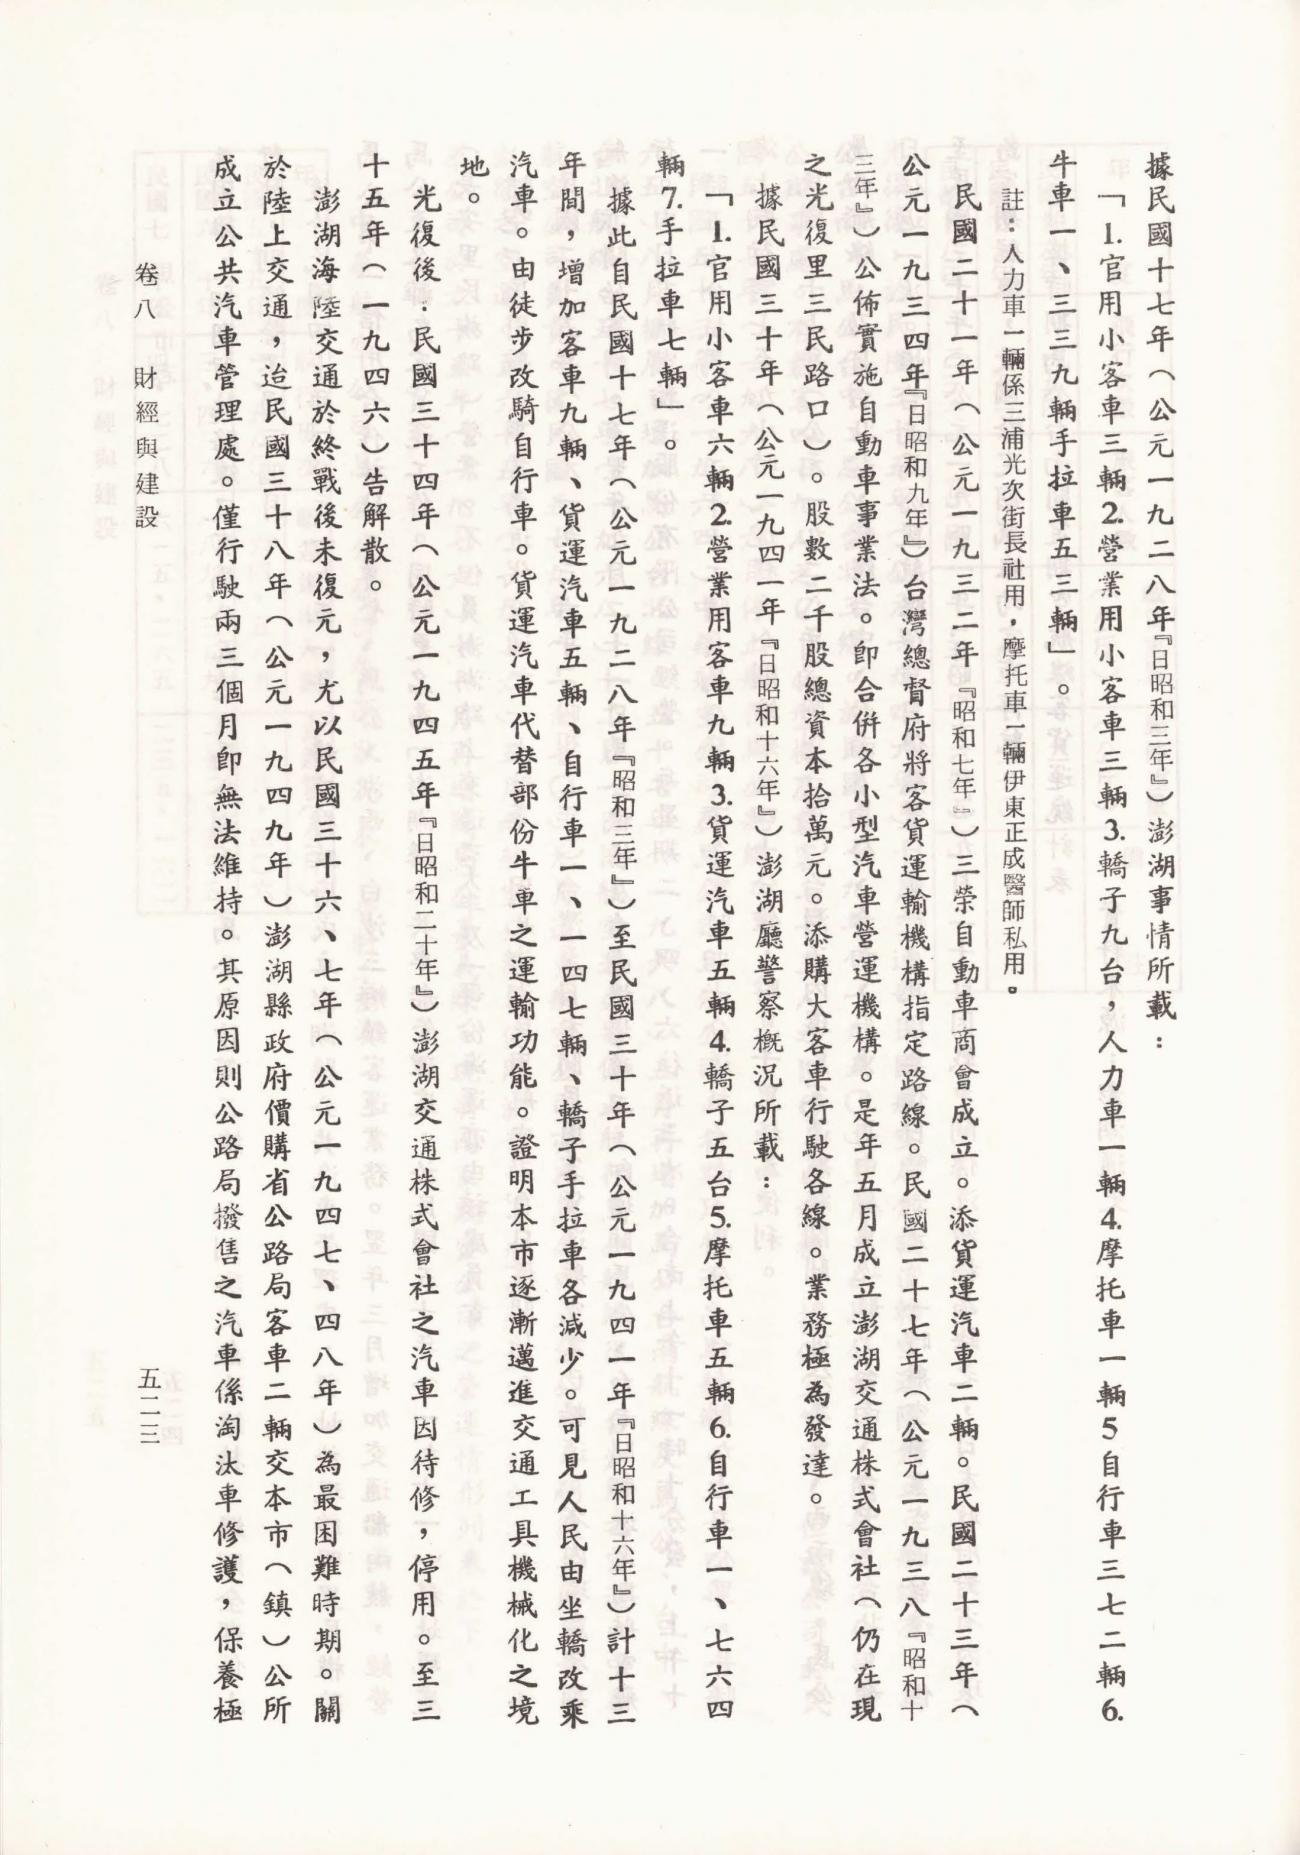 據民國十七年（公元一九二八年『日昭和三年』）澎湖事情所載：
「1.官用小客車三輛2.營業用小客車三輛3.轎子九台，人力車一輛4.摩托車一輛5自行車三七二輛6.
牛車一、三三九輛手拉車五三輛」。
註：人力車一輛係三浦光次街長社用，摩托車一輛伊東正成醫師私用。
民國二十一年（公元一九三二年『昭和七年』）三榮自動車商會成立。添貨運汽車二輛。民國二十三年（
公元一九三四年『日昭和九年』）台灣總督府將客貨運輸機構指定路線。民國二十七年（公元一九三八『昭和十
三年』）公佈實施自動車事業法。卽合併各小型汽車營運機構。是年五月成立澎湖交通株式會社（仍在現
之光復里三民路口）。股數二千股總資本拾萬元。添購大客車行駛各線。業務極為發達。
據民國三十年（公元一九四一年『日昭和十六年』）澎湖廳警察概況所載：
「1.官用小客車六輛2.營業用客車九輛3.貨運汽車五輛4.轎子五台5.摩托車五輛6.自行車一、七六四
輛7.手拉車七輛」。
據此自民國十七年（公元一九二八年『昭和三年』）至民國三十年（公元一九四一年『日昭和十六年』）計十三
年間，增加客車九輛、貨運汽車五輛、自行車一、一四七輛、轎子手拉車各減少。可見人民由坐轎改乘
汽車。由徒步改騎自行車。貨運汽車代替部份牛車之運輸功能。證明本市逐漸邁進交通工具機械化之境
地。
光復後：民國三十四年（公元一九四五年『日昭和二十年』）澎湖交通株式會社之汽車因待修，停用。至三
十五年（一九四六）告解散。
澎湖海陸交通於終戰後未復元，尤以民國三十六、七年（公元一九四七、四八年）為最困難時期。關
於陸上交通，迨民國三十八年（公元一九四九年）澎湖縣政府價購省公路局客車二輛交本市（鎮）公所
成立公共汽車管理處。僅行駛兩三個月卽無法維持。其原因則公路局撥售之汽車係淘汰車修護，保養極
卷八　財經與建設
五二三